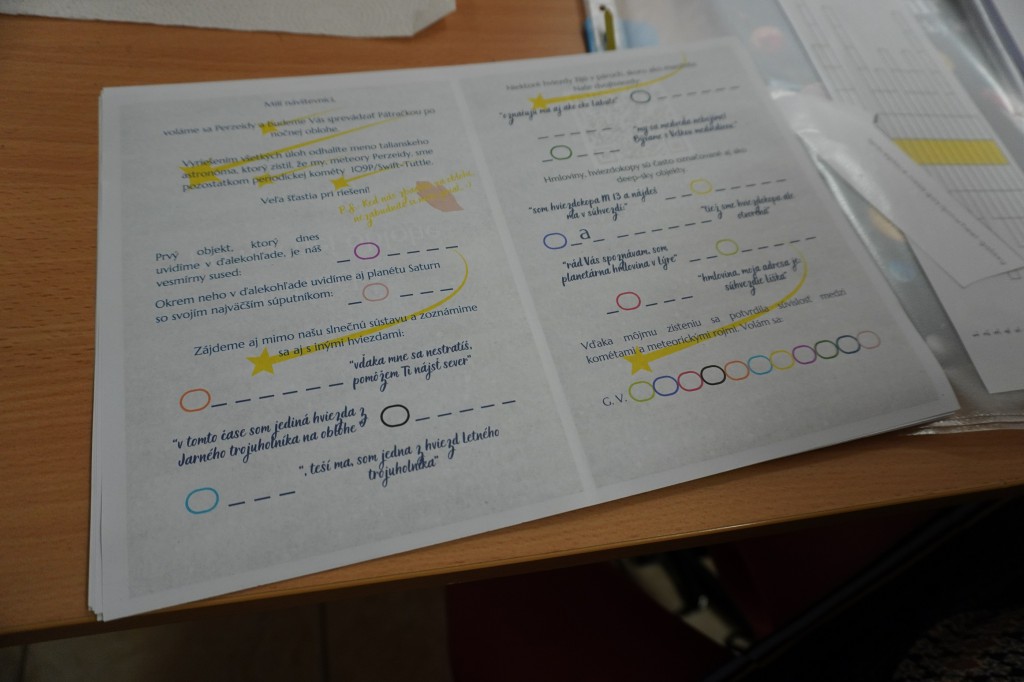 Milí návštevníci,
voláme sa Perzeidy a budeme Vás sprevádzať Pátračkou po
nočnej oblohe.
Vyriešením všetkých úloh odhalíte meno talianskeho
astronóma, ktorý zistil, že my, meteory Perzeidy, sme
pozostatkom periodickej kométy 109P/Swift-Tuttle.
Veľa šťastia pri riešení!
P.S. Keď nás
Prvý objekt, ktorý dnes
uvidíme v ďalekohľade, je náš
vesmírny sused:
Okrem neho v ďalekohľade uvidíme aj planétu Saturn
so svojím najväčším súputníkom:
Zájdeme aj mimo našu slnečnú sústavu a zoznámime
sa aj s inými hviezdami:
"vďaka mne sa nestratíš,
pomôžem Ti nájsť sever"
"v tomto čase som jediná hviezda z
Jarného trojuholníka na oblohe"
", teší ma, som jedna z hviezd letného
trojuholníka"
Niektoré hviezdy žijú v pároch,
Naše dvojhviezdy
"my sa medveďa nebojíme!
Bývame s Veľkou medvedicou."
Hmloviny, hviezdokopy sú často označované aj ako
deep-sky objekty:
"som hviezdokopa M 13 a nájdeš
ma v súhvezdí:"
"tiež sme hviezdokopa ale
otvorená"
a
"rád Vás spoznávam, som
planetárna hmlovina v Lýre"
"hmlovina, moja adresa je
súhvezdie Líška"
Vďaka môjmu zisteniu sa potvrdila súvislosť medzi
kométami a meteorickými rojmi. Volám sa:
G. V.